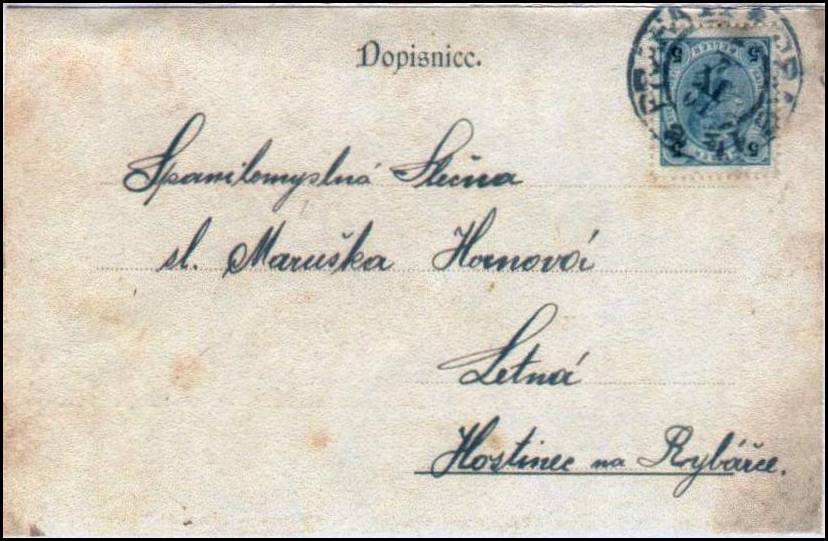 Dopisnice.
5 5
Spanilomyslná Slečna
sl. Maruška Hornová
Letná
Hostinec na Rybářce.
5 5